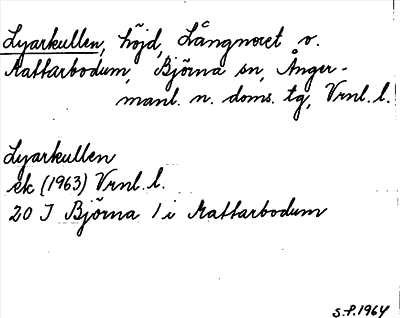 Lyarkullen, höjd, Långneret v.
Mattarbodum, Björna sn, Ånger-
manl. n. doms. tg, Vrnl. l.
Lyarkullen
ek (1963) Vrnl. l.
20 J Björna 1 i Mattarbodum
S.P.1964